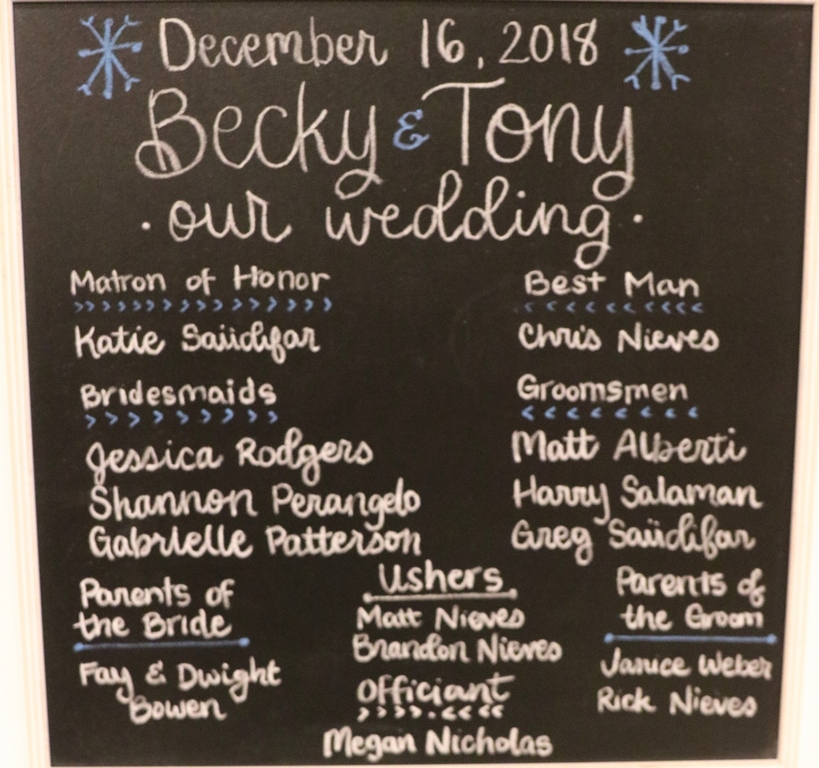 December 16, 2018
Becky & Tony
· our wedding ·
Matron of Honor
Katie Saiidifar
Bridesmaids
Jessica Rodgers
Shannon Perangelo
Gabrielle Patterson
Best Man
Chris Nieves
Groomsmen
Matt Alberti
Harry Salaman
Greg Saiidifar
Parents of
the Bride
Fay & Dwight
Bowen
Ushers
Matt Nieves
Brandon Nieves
Officiant
Megan Nicholas
Parents of
the Groom
Janice Weber
Rick Nieves